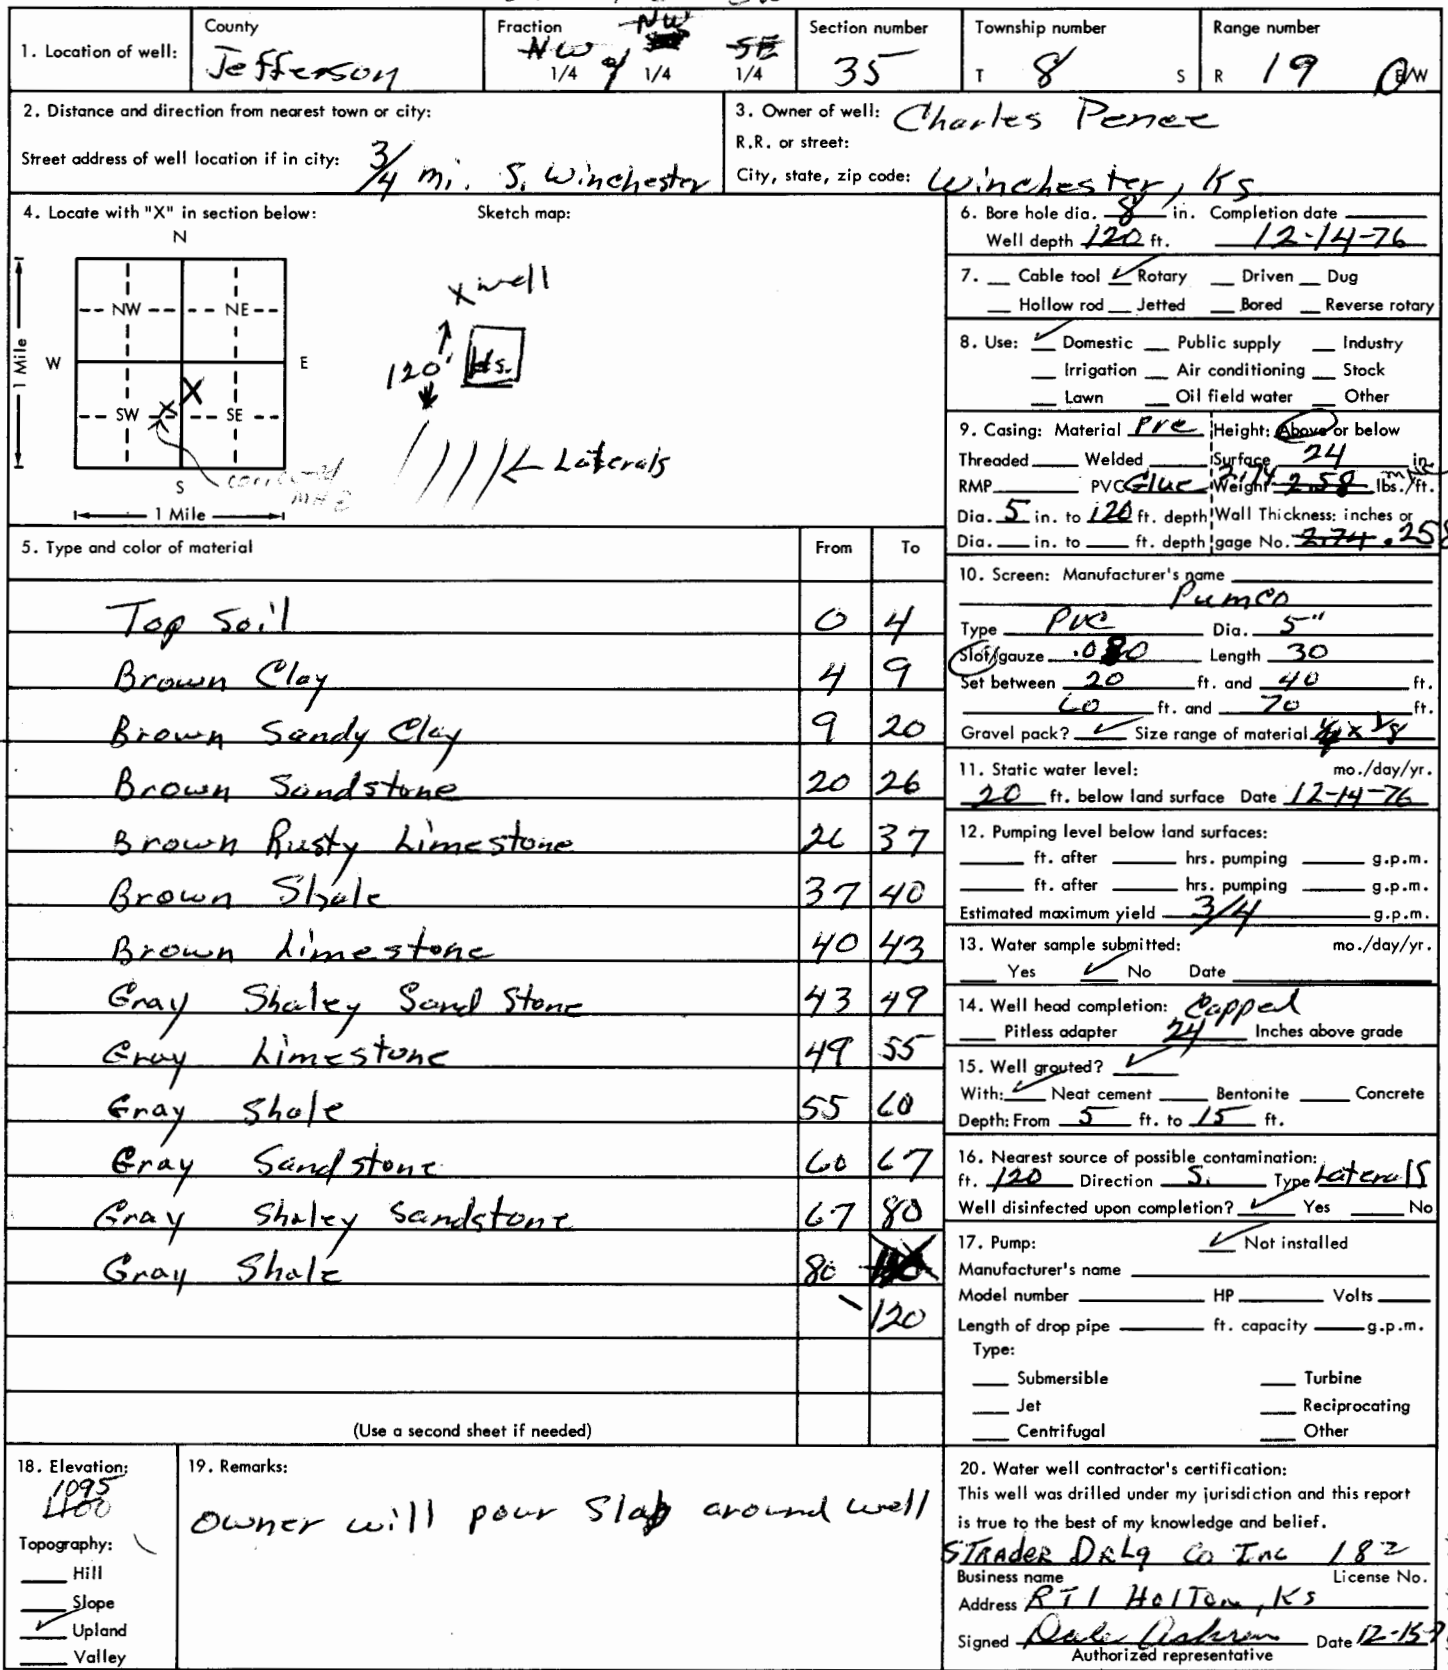 County
Fraction
Section number
Township number
Range number
1. Location of well:
Jefferson
NW 1/4 of NW 1/4 SE 1/4
35
T 8 S
R 19 E/W
2. Distance and direction from nearest town or city:
Street address of well location if in city:
3/4 mi. S. Winchester
3. Owner of well: Charles Pence
R.R. or street:
City, state, zip code: Winchester, Ks
4. Locate with "X" in section below:
Sketch map:
N
NW NE
W E
1 Mile
X
SW X SE
S
1 Mile
X well
120'
Hs.
Laterals
6. Bore hole dia. 8 in. Completion date
Well depth 120 ft. 12-14-76
7. Cable tool ✓ Rotary Driven Dug
Hollow rod Jetted Bored Reverse rotary
8. Use: ✓ Domestic Public supply Industry
Irrigation Air conditioning Stock
Lawn Oil field water Other
9. Casing: Material PVC Height: Above or below
Threaded Welded Surface 24 in.
RMP PVC Glue Weight 2.74 2.58 lbs./ft.
Dia. 5 in. to 120 ft. depth Wall Thickness: inches or
Dia. in. to ft. depth gage No. 2.74 .258
5. Type and color of material
From To
Top Soil 0 4
Brown Clay 4 9
Brown Sandy Clay 9 20
Brown Sandstone 20 26
Brown Rusty Limestone 26 37
Brown Shale 37 40
Brown Limestone 40 43
Gray Shaley Sand Stone 43 49
Gray Limestone 49 55
Gray Shale 55 60
Gray Sandstone 60 67
Gray Shaley Sandstone 67 80
Gray Shale 80
120
(Use a second sheet if needed)
10. Screen: Manufacturer's name
Pumco
Type PVC Dia. 5"
Slot/gauze Length 30
Set between 20 ft. and 40 ft.
60 ft. and 70 ft.
Gravel pack? ✓ Size range of material x 1/8
11. Static water level: mo./day/yr.
20 ft. below land surface Date 12-14-76
12. Pumping level below land surfaces:
ft. after hrs. pumping g.p.m.
ft. after hrs. pumping g.p.m.
Estimated maximum yield 3/4 g.p.m.
13. Water sample submitted: mo./day/yr.
Yes ✓ No Date
14. Well head completion: Capped
Pitless adapter 24 Inches above grade
15. Well grouted? ✓
With: ✓ Neat cement Bentonite Concrete
Depth: From 5 ft. to 15 ft.
16. Nearest source of possible contamination:
ft. 120 Direction S. Type Laterals
Well disinfected upon completion? ✓ Yes No
17. Pump: ✓ Not installed
Manufacturer's name
Model number HP Volts
Length of drop pipe ft. capacity g.p.m.
Type:
Submersible Turbine
Jet Reciprocating
Centrifugal Other
18. Elevation:
1095
1100
Topography:
Hill
Slope
✓ Upland
Valley
19. Remarks:
Owner will pour Slab around well
20. Water well contractor's certification:
This well was drilled under my jurisdiction and this report
is true to the best of my knowledge and belief.
STRADER DRLg Co Inc 182
Business name License No.
Address RT1 Holton, Ks
Signed Date 12-15-7
Authorized representative